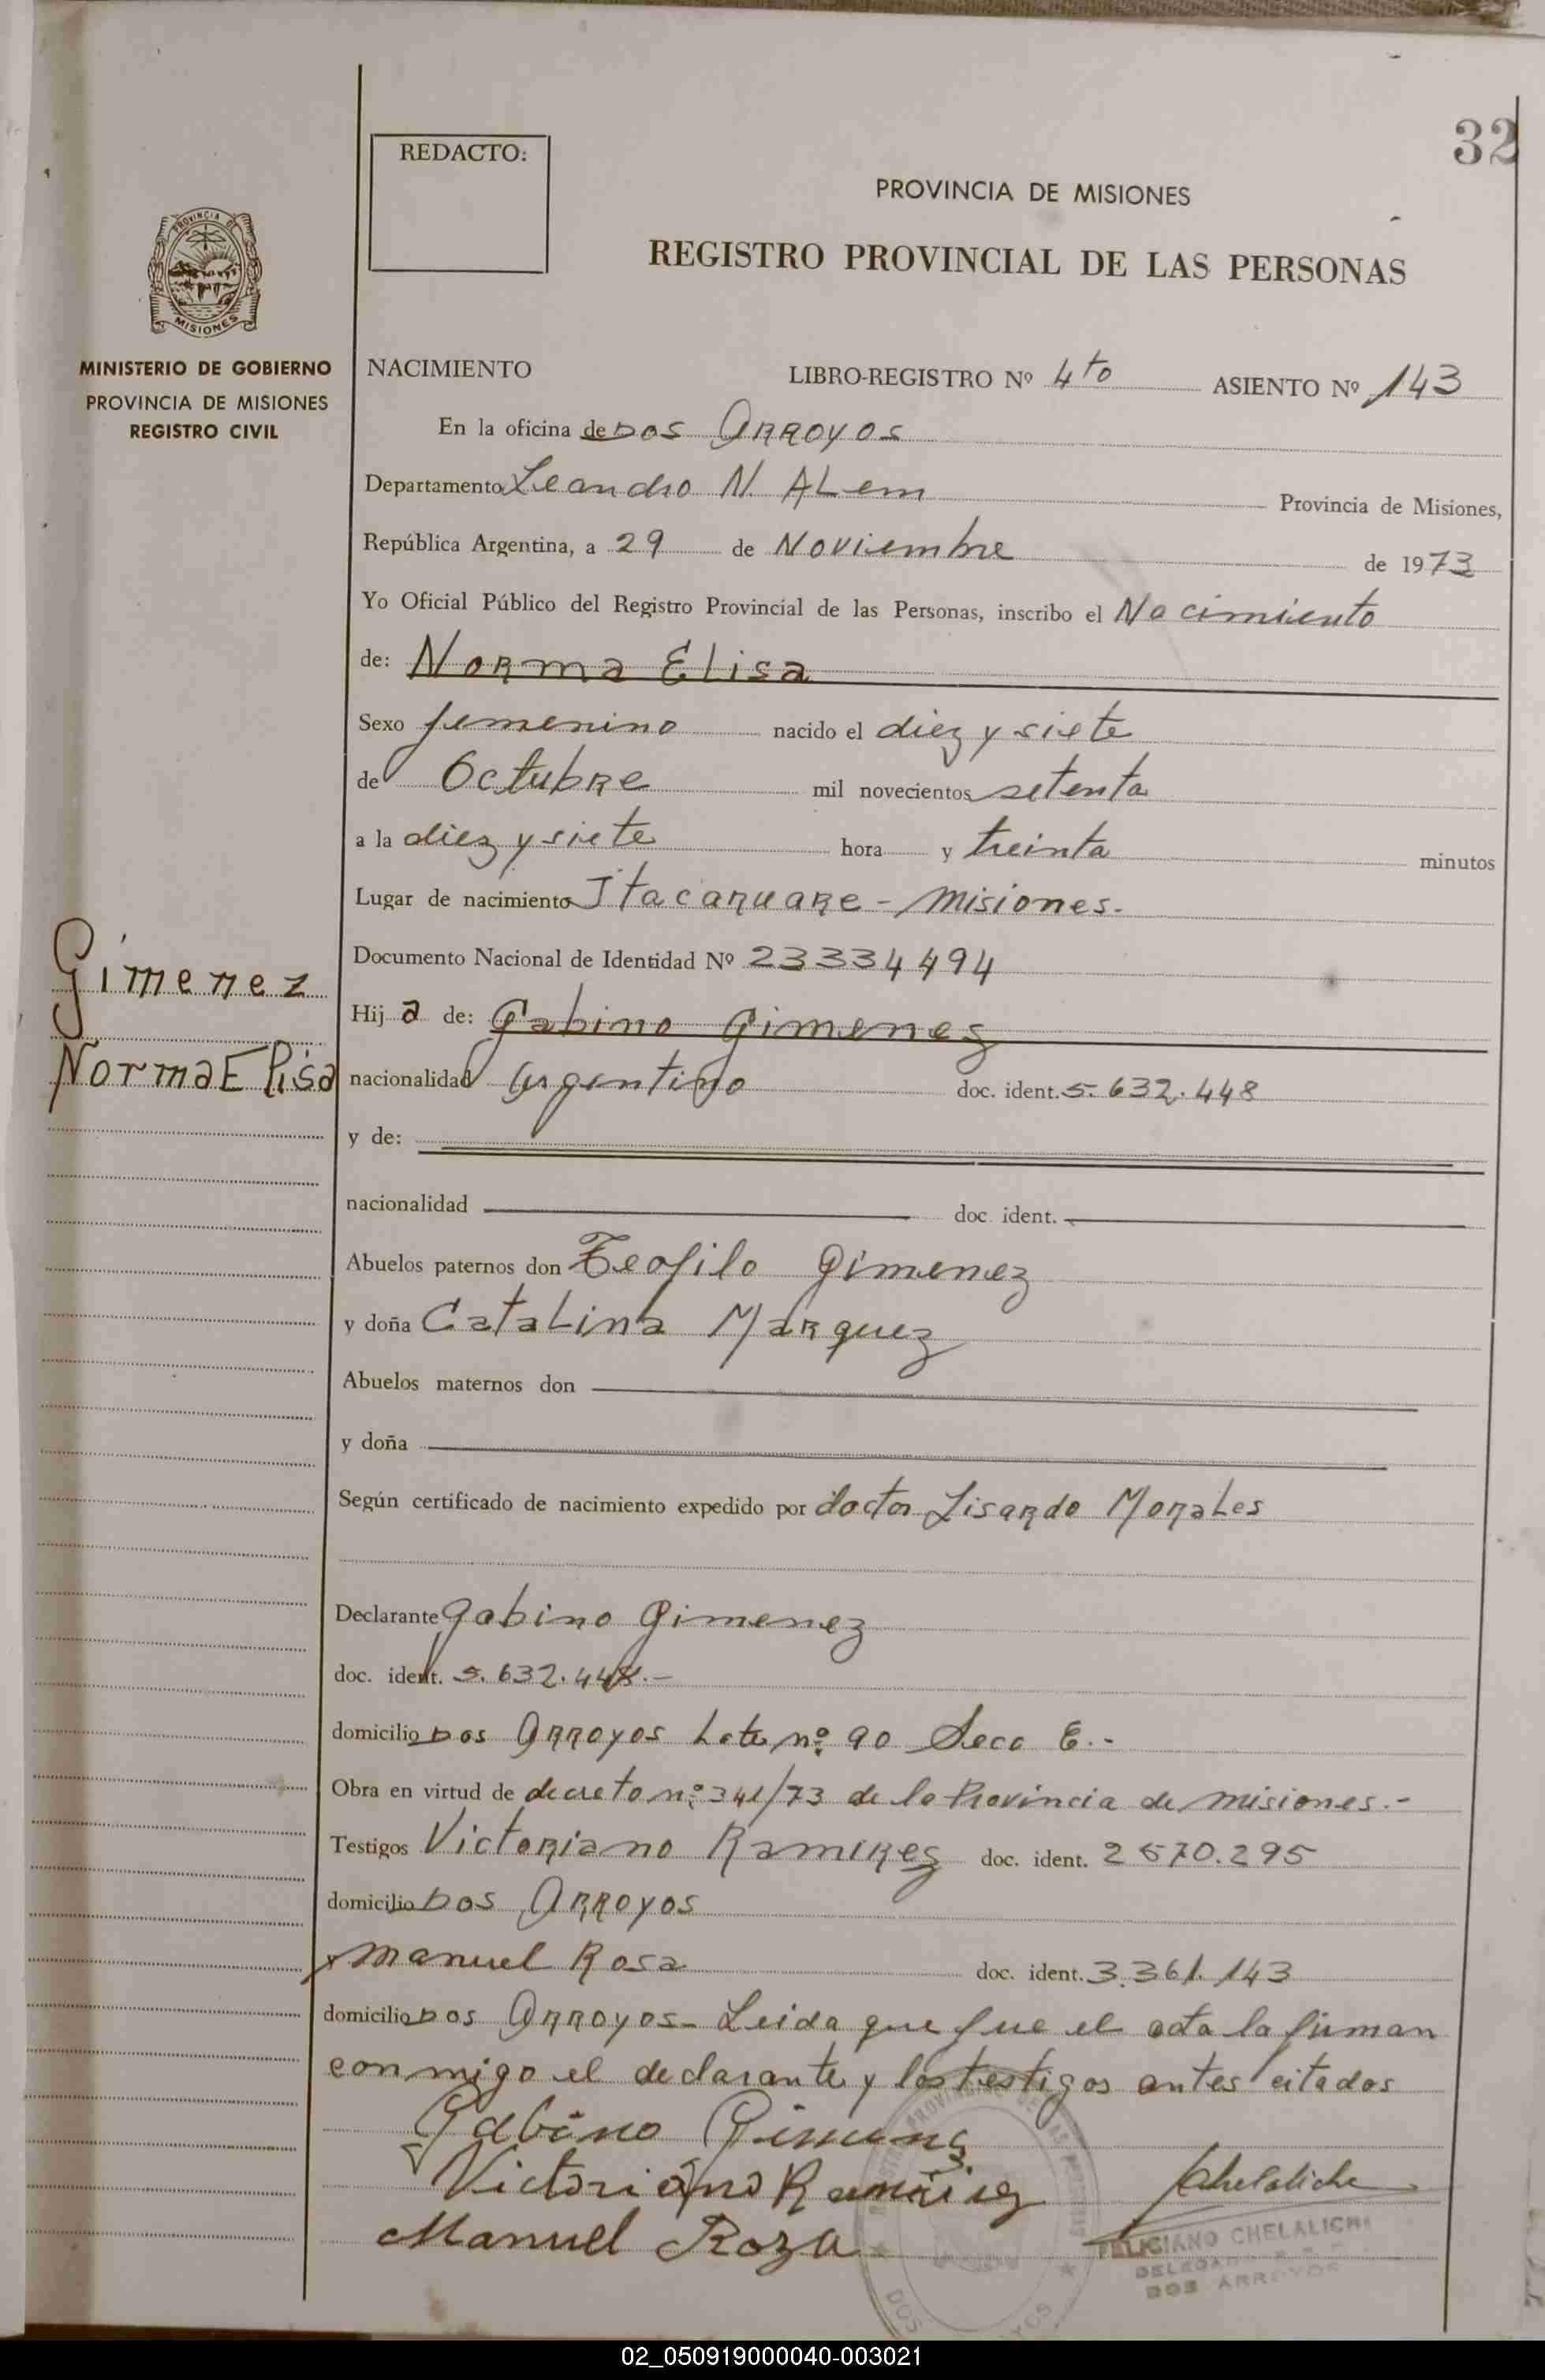 32
REDACTO:
PROVINCIA DE MISIONES
REGISTRO PROVINCIAL DE LAS PERSONAS
PROVINCIA DE
MISIONES
MINISTERIO DE GOBIERNO
PROVINCIA DE MISIONES
REGISTRO CIVIL
NACIMIENTO LIBRO-REGISTRO Nº 4to ASIENTO Nº 143
En la oficina de DOS ARROYOS
Departamento Leandro N. ALem Provincia de Misiones,
República Argentina, a 29 de Noviembre de 1973
Yo Oficial Público del Registro Provincial de las Personas, inscribo el Nacimiento
de: Norma Elisa
Sexo femenino nacido el diez y siete
de Octubre mil novecientos setenta
a la diez y siete hora y treinta minutos
Lugar de nacimiento Itacaruare - Misiones.
Documento Nacional de Identidad Nº 23334494
Gimenez
Norma Elisa
Hij a de: Gabino Gimenez
nacionalidad Argentino doc. ident. 5.632.448
y de:
nacionalidad doc. ident.
Abuelos paternos don Teofilo Gimenez
y doña CataLina Marquez
Abuelos maternos don
y doña
Según certificado de nacimiento expedido por doctor Lisardo Morales
Declarante Gabino Gimenez
doc. ident. 5.632.448.-
domicilio Dos Arroyos Lote nº 90 Secc E.-
Obra en virtud de decreto nº 341/73 de la Provincia de misiones.-
Testigos Victoriano Ramirez doc. ident. 2570.295
domicilio Dos Arroyos
y Manuel Rosa doc. ident. 3.361.143
domicilio Dos Arroyos- Leida que fue el acta la firman
conmigo el declarante y los testigos antes citados
Gabino Gimenez
Victoriano Ramirez
Manuel Roza
Chelaliche
FELICIANO CHELALICHE
DELEGADO
DOS ARROYOS
02_050919000040-003021